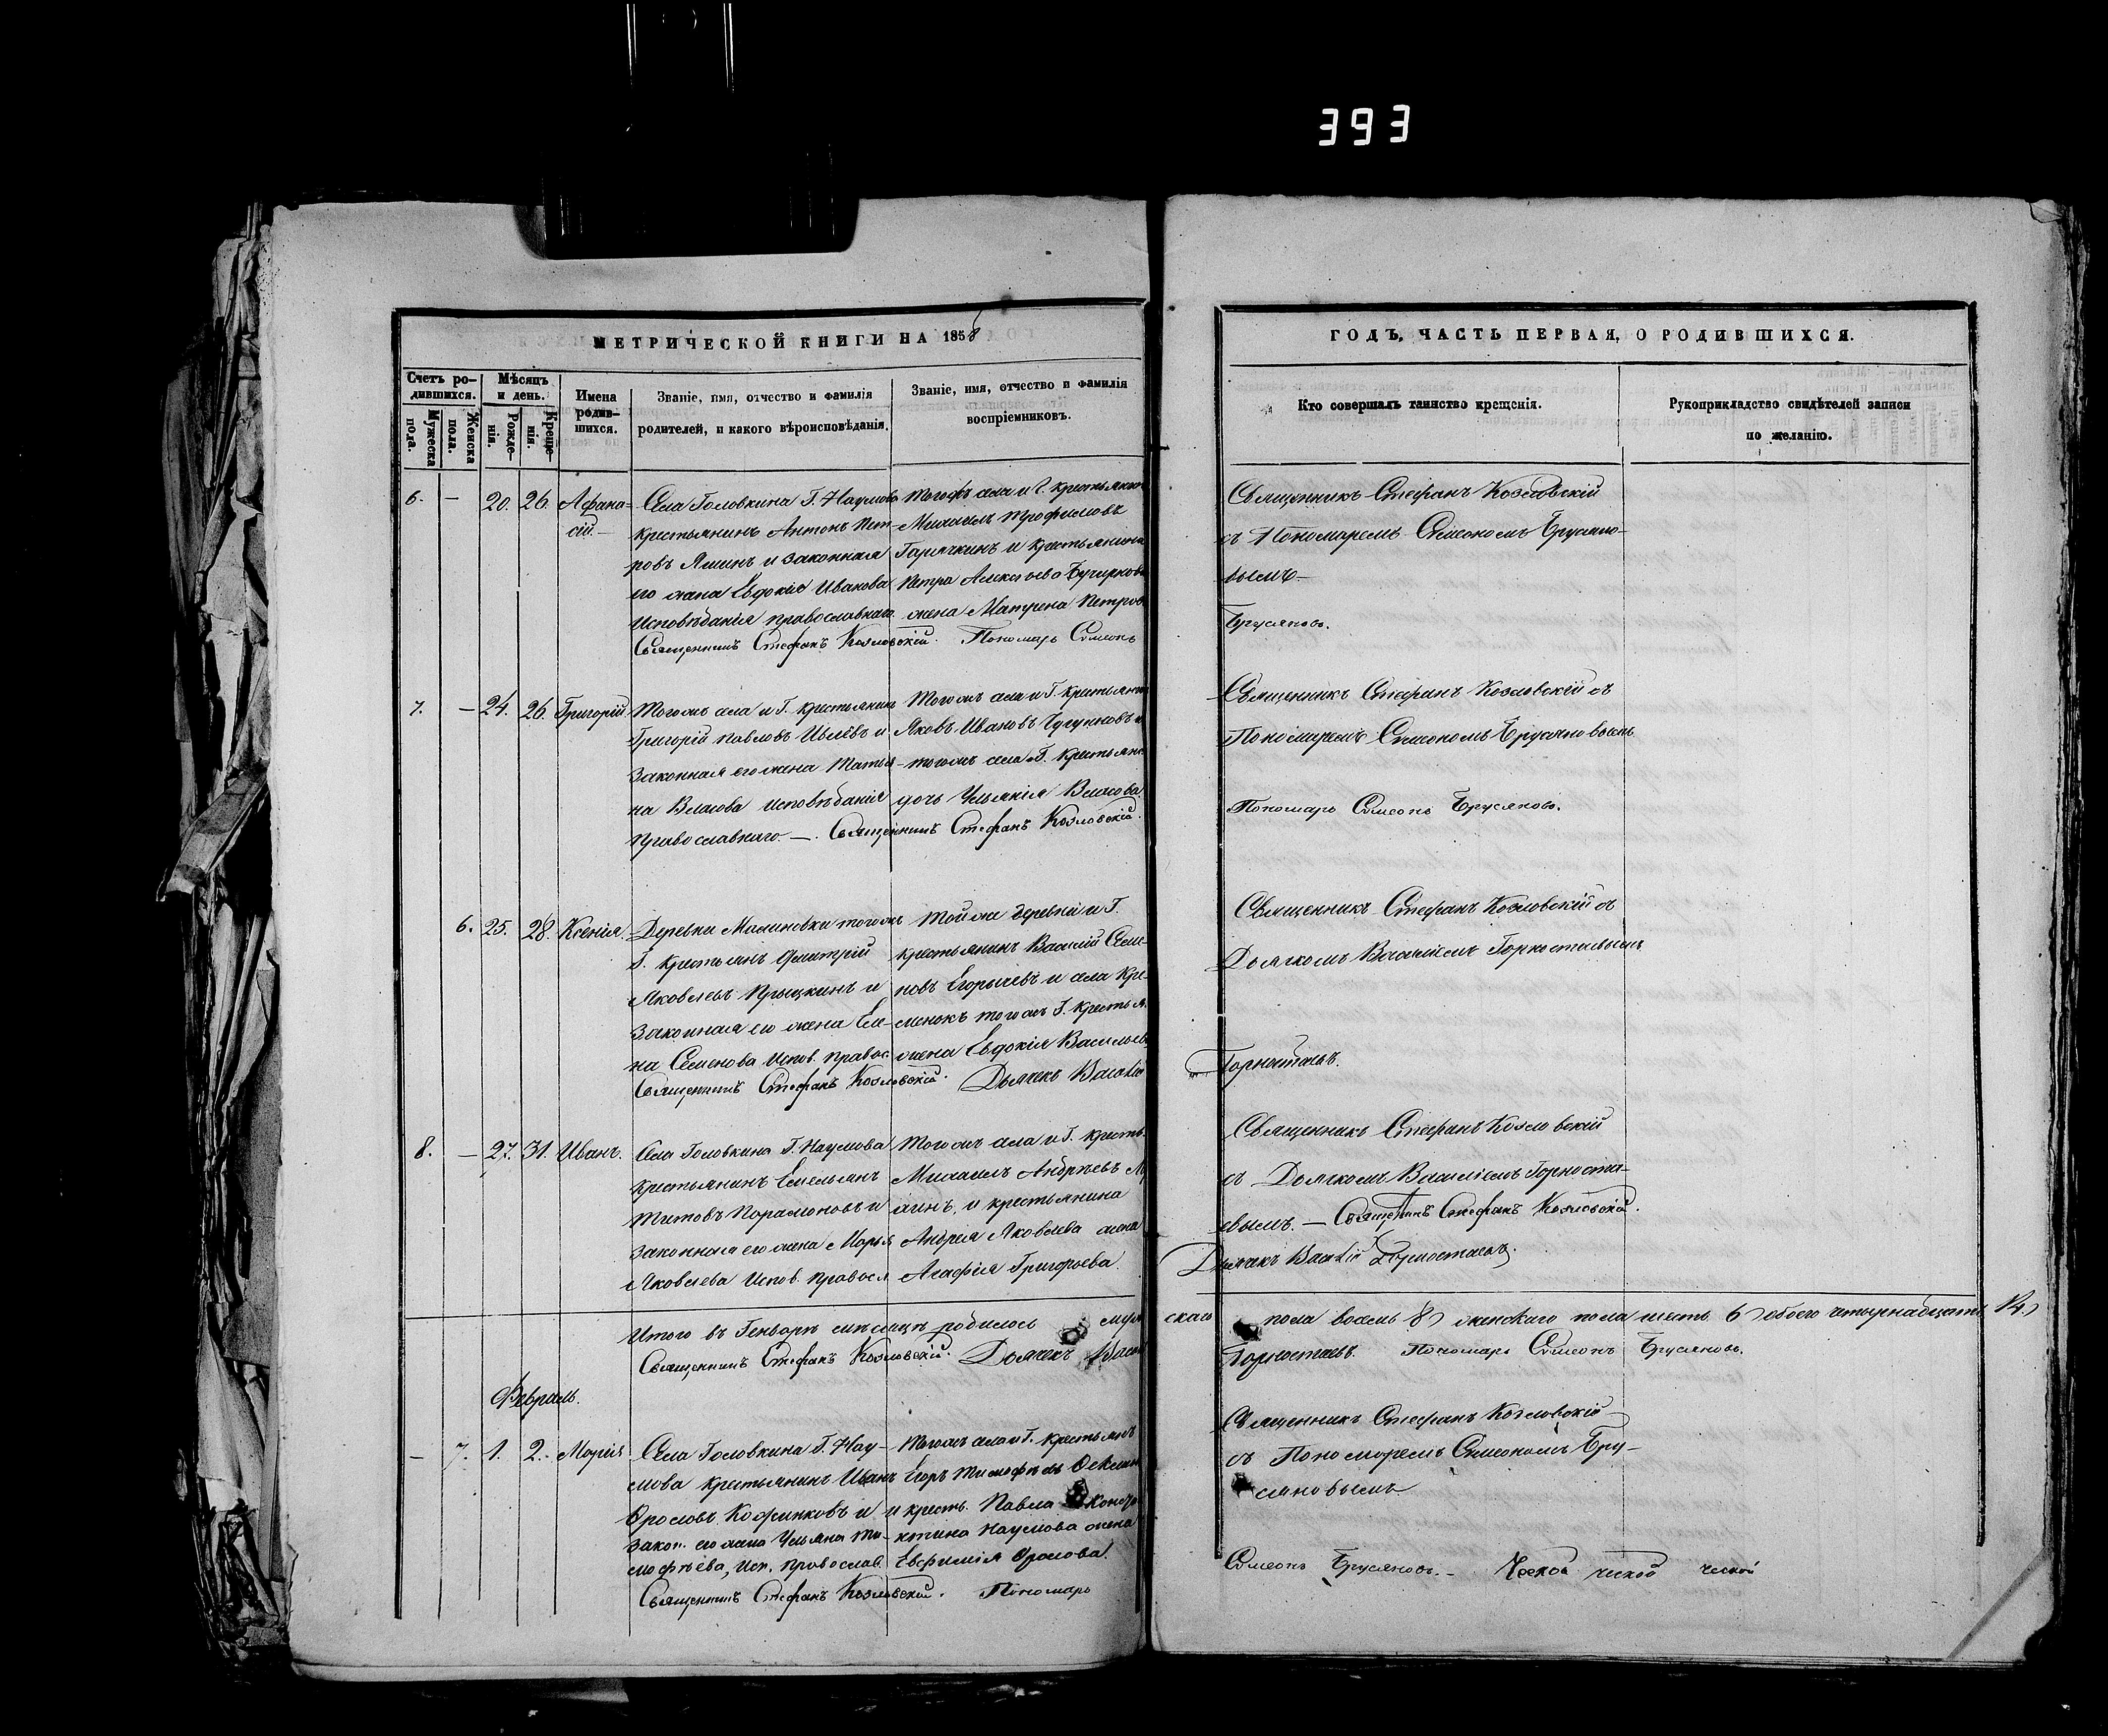 393
МЕТРИЧЕСКОЙ КНИГИ НА 1858
Счетъ ро-
дившихся.
Мужеска
пола.
Женска
пола.
Мѣсяцъ
и день.
Рожде-
нія.
Креще-
нія.
Имена
родив-
шихся.
Званіе, имя, отчество и фамилія
родителей, и какого вѣроисповѣданія.
Званіе, имя, отчество и фамилія
воспріемниковъ.
6. — 20. 26. Афана-
сій. —
Села Головкина Г. Наумова
крестьянинъ Антонъ Пет-
ровъ Яшинъ и законная
его жена Евдокія Иванова
Исповѣданія православнаго.
Тогожъ села и Г.
Михаилъ Трофимовъ
Гарячкинъ и крестьянина
Петра Алексѣева
жена Матрена
Священникъ Стефанъ Козловскій. Пономарь Симеонъ
7. — 24. 26. Григорій
Тогожъ села и Г. крестьянинъ
Григорій Павловъ Ивлевъ и
законная его жена Татья-
на Власова исповѣданія
православнаго. —
Тогожъ села и Г.
Яковъ Ивановъ Чугуновъ и
тогожъ села Г.
дочь Ульянія Власова.
Священникъ Стефанъ Козловскій.
6. 25. 28. Ксенія.
Деревни Малиновки тогожъ
Г. крестьянинъ Дмитрій
Яковлевъ Прыцкинъ и
законная его жена Еле-
на Семенова испов. правос.
Той же деревни и Г.
крестьянинъ Василій Семе-
новъ Егорычевъ и села Кре-
менокъ тогожъ Г.
жена Евдокія
Священникъ Стефанъ Козловскій. Дьячекъ Василій
8. — 27. 31. Иванъ.
Села Головкина Г. Наумова
крестьянинъ Емельянъ
Титовъ Парамоновъ и
законная его жена Марья
Яковлева испов. правосл.
Тогожъ села и Г. крест.
Михаилъ Андреевъ
и крестьянина
Андрея Яковлева жена
Агафія Григорьева.
Итого въ Генварѣ мѣсяцѣ родилось муж
Священникъ Стефанъ Козловскій. Дьячекъ
Февраль.
— 7. 1. 2. Марія
Села Головкина Г. Нау-
мова крестьянинъ Иванъ
Фроловъ и
закон. его жена Ульяна Ти-
мофѣева, исп. православ.
Тогожъ села и Г.
Егоръ Тимофѣевъ
и крест. Павла
Наумова жена
Евфимія Фролова.
Священникъ Стефанъ Козловскій. Пономарь
ГОДЪ, ЧАСТЬ ПЕРВАЯ, О РОДИВШИХСЯ.
Кто совершалъ таинство крещенія.
Рукоприкладство свидѣтелей записи
по желанію.
Священникъ Стефанъ Козловскій
съ Пономаремъ Симеономъ Брусяно-
вымъ —
Брусяновъ.
Священникъ Стефанъ Козловскій съ
Пономаремъ Симеономъ Брусяновымъ
Пономарь Симеонъ Брусяновъ.
Священникъ Стефанъ Козловскій съ
Дьячкомъ Василіемъ Горностаевымъ
Горностаевъ.
Священникъ Стефанъ Козловскій
съ Дьячкомъ Василіемъ Горноста-
евымъ. — Священникъ Стефанъ Козловскій.
Дьячекъ Василій Горностаевъ.
скаго пола восемь 8, женскаго пола шесть 6, обоего четырнадцать 14,
Горностаевъ. Пономарь Симеонъ Брусяновъ.
Священникъ Стефанъ Козловскій
съ Пономаремъ Симеономъ Бру-
сяновымъ
Симеонъ Брусяновъ. —